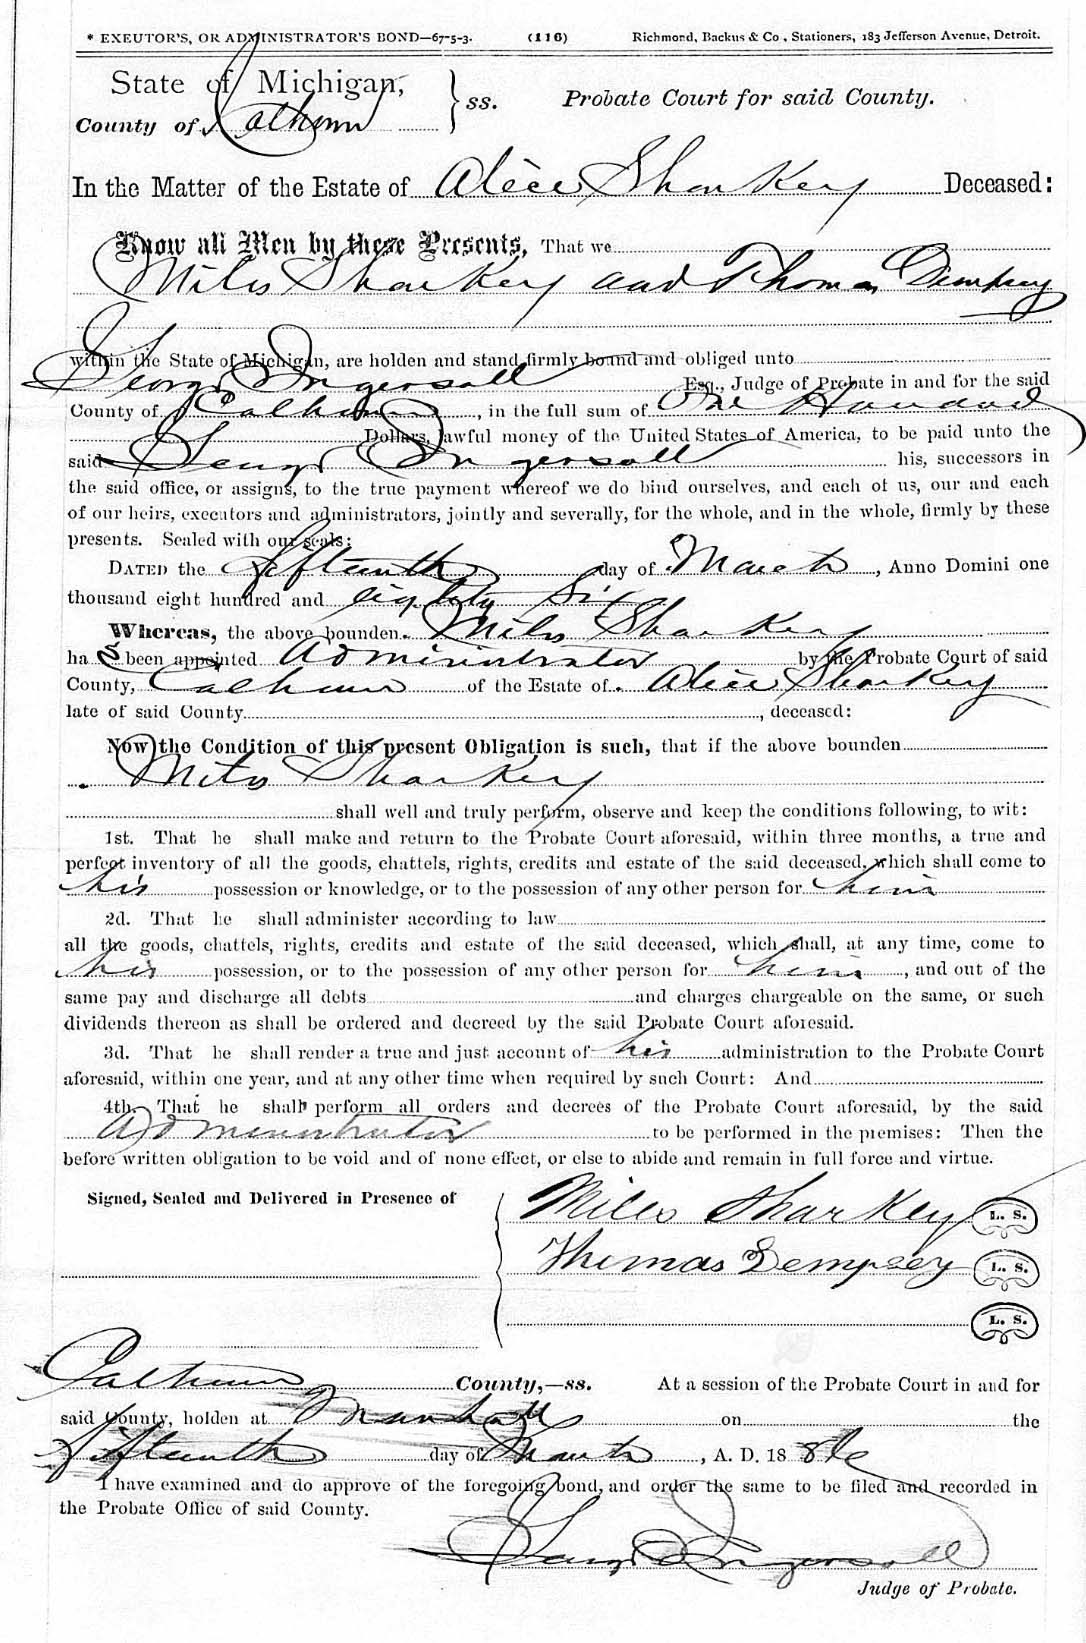 * EXEUTOR'S, OR ADMINISTRATOR'S BOND—67-5-3. (116) Richmond, Backus & Co., Stationers, 183 Jefferson Avenue, Detroit.
State of Michigan, } ss. Probate Court for said County.
County of Calhoun
In the Matter of the Estate of Alice Sharkey Deceased:
Know all Men by these Presents, That we
Miles Sharkey and Thomas Dempsey
within the State of Michigan, are holden and stand firmly bound and obliged unto
George Ingersoll Esq., Judge of Probate in and for the said
County of Calhoun, in the full sum of One Hundred
Dollars, lawful money of the United States of America, to be paid unto the
said George Ingersoll his, successors in
the said office, or assigns, to the true payment whereof we do bind ourselves, and each of us, our and each
of our heirs, executors and administrators, jointly and severally, for the whole, and in the whole, firmly by these
presents. Sealed with our seals:
DATED the fifteenth day of March, Anno Domini one
thousand eight hundred and eighty Six
Whereas, the above bounden Miles Sharkey
has been appointed Administrator by the Probate Court of said
County, Calhoun of the Estate of Alice Sharkey
late of said County, deceased:
Now the Condition of this present Obligation is such, that if the above bounden
Miles Sharkey
shall well and truly perform, observe and keep the conditions following, to wit:
1st. That he shall make and return to the Probate Court aforesaid, within three months, a true and
perfect inventory of all the goods, chattels, rights, credits and estate of the said deceased, which shall come to
his possession or knowledge, or to the possession of any other person for him
2d. That he shall administer according to law
all the goods, chattels, rights, credits and estate of the said deceased, which shall, at any time, come to
his possession, or to the possession of any other person for him, and out of the
same pay and discharge all debts and charges chargeable on the same, or such
dividends thereon as shall be ordered and decreed by the said Probate Court aforesaid.
3d. That he shall render a true and just account of his administration to the Probate Court
aforesaid, within one year, and at any other time when required by such Court: And
4th. That he shall perform all orders and decrees of the Probate Court aforesaid, by the said
Administrator to be performed in the premises: Then the
before written obligation to be void and of none effect, or else to abide and remain in full force and virtue.
Signed, Sealed and Delivered in Presence of
Miles Sharkey L. S.
Thomas Dempsey L. S.
L. S.
Calhoun County,—ss. At a session of the Probate Court in and for
said County, holden at Marshall on the
fifteenth day of March, A. D. 1886
I have examined and do approve of the foregoing bond, and order the same to be filed and recorded in
the Probate Office of said County.
George Ingersoll
Judge of Probate.